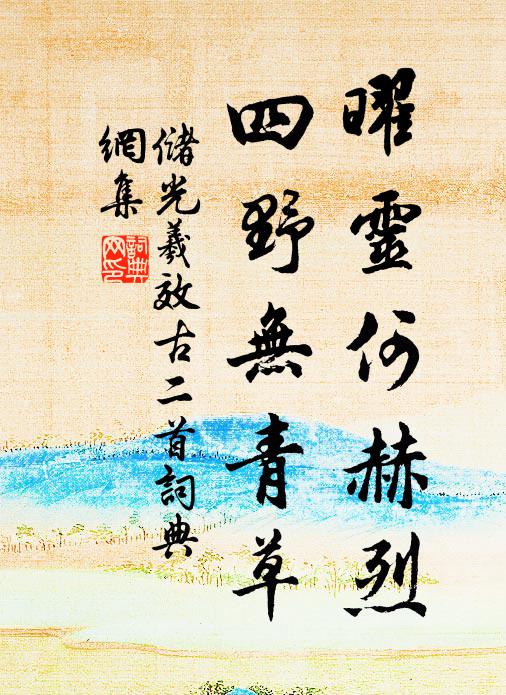 曜靈何赫烈
四野無青草
儲光羲效古二首詞典
網集
詞典
网印